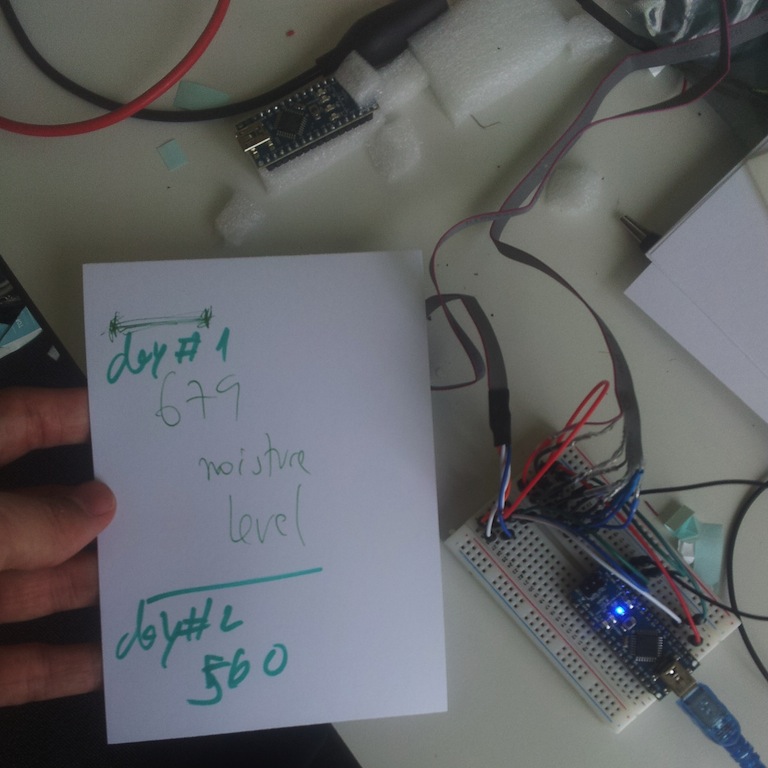 day #1
679
moisture
level
day #2
560